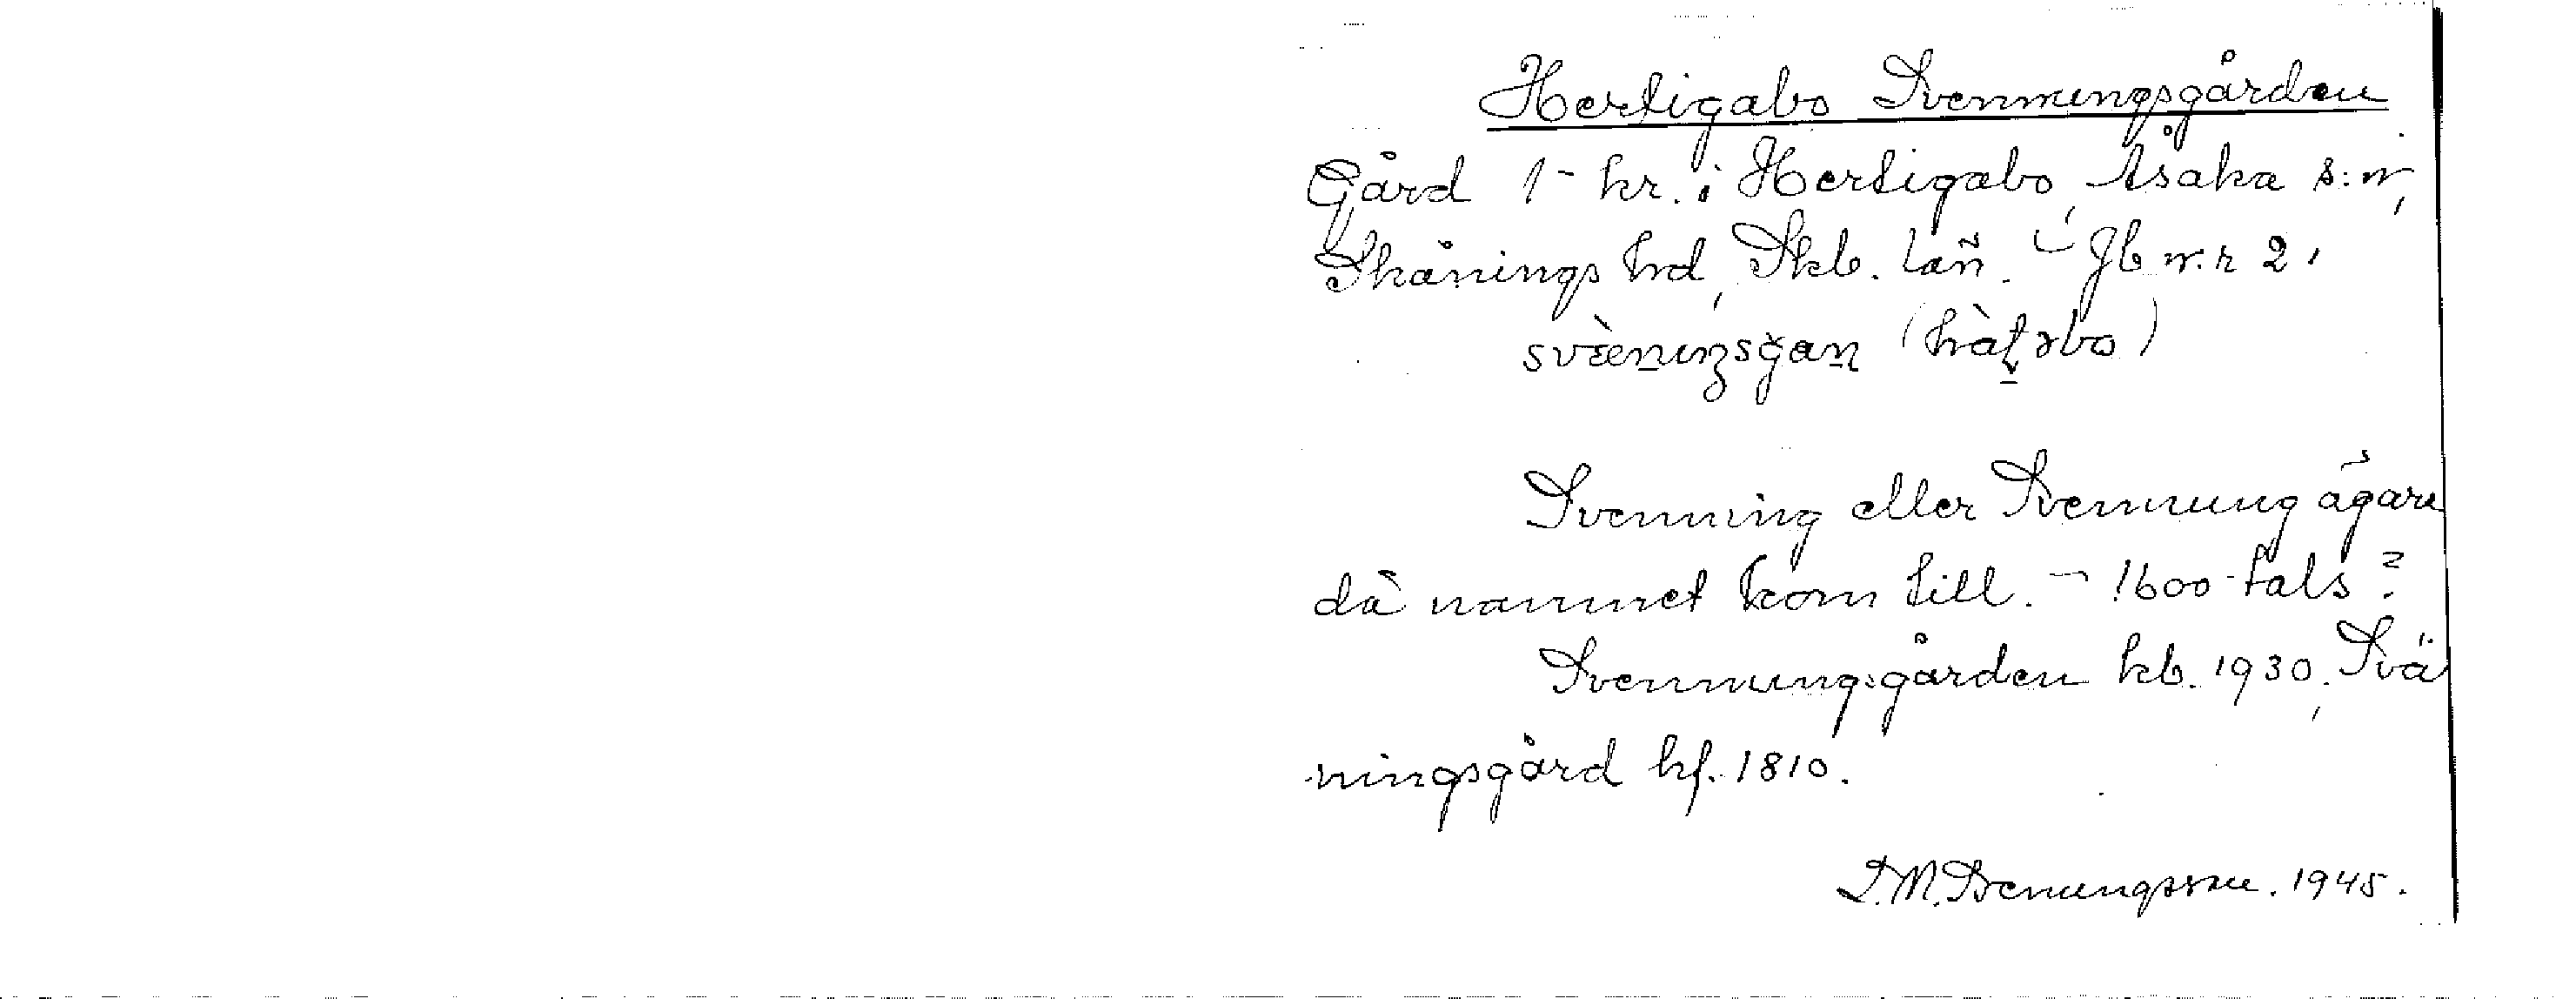 Hertigabo Svenningsgården
Gård 1 - kr. i Hertigabo, Åsaka s:n,
Skånings hd, Skb. län. - Jb n:r 2.
svæ̀nuŋsgan (hàʈəbo)
Svenning eller Svennung ägare
då namnet kom till. - 1600-tals?
Svennungsgården kb. 1930, Svä
ningsgård hf. 1810.
D. M. Svenungsson. 1945.